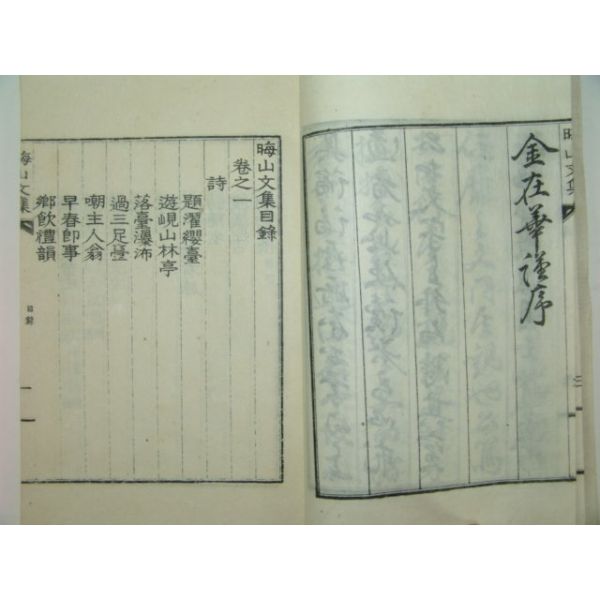 晦山文集
金在華謹序
晦山文集目錄
卷之一
詩
題濯纓臺
遊峴山林亭
落臺瀑沛
過三足臺
嘲主人翁
早春卽事
鄉飮禮韻
晦山文集
目錄
一